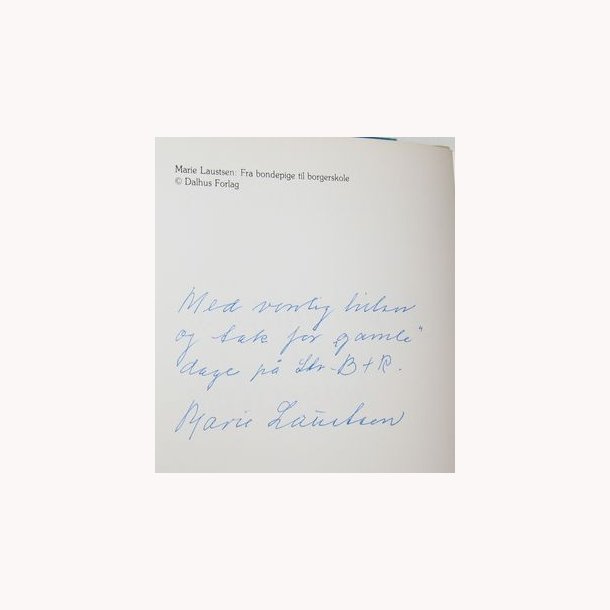 Marie Laustsen: Fra bondepige til borgerskole
© Dalhus Forlag
Med venlig hilsen
og tak for „gamle"
dage på Str. B+R.
Marie Laustsen